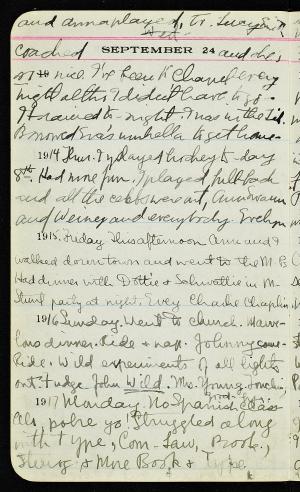 and Anna played, Tr. Lucy
coached SEPTEMBER 24 and she,
was nice. I've been to Chapel every
night altho I didn't have to go.
It rained to-night. I was in the Lib.
Borrowed Eva's umbrella to get home.
1914 Thur. I played hockey to-day
8th. Had more fun. I played full-back
and all the celebs were out, Ann Swann
and Weiney and everybody. Evelyn
1915. Friday. This afternoon Ann and I
walked down town and went to the M. B.
Had dinner with Dottie & Schwattie in M-
Stunt party at night. Evey Charlie Chaplin
1916 Sunday. Went to church.
dinner. Ride & nap. Johnny came-
Ride. Wild experiments of all lights
out. Fudge. John Wild. Mrs. Young.
1917 Monday. No Spanish Class
pobre yo. Struggled along
with type, Com. Law, Book.,
Steno & More Book & Type